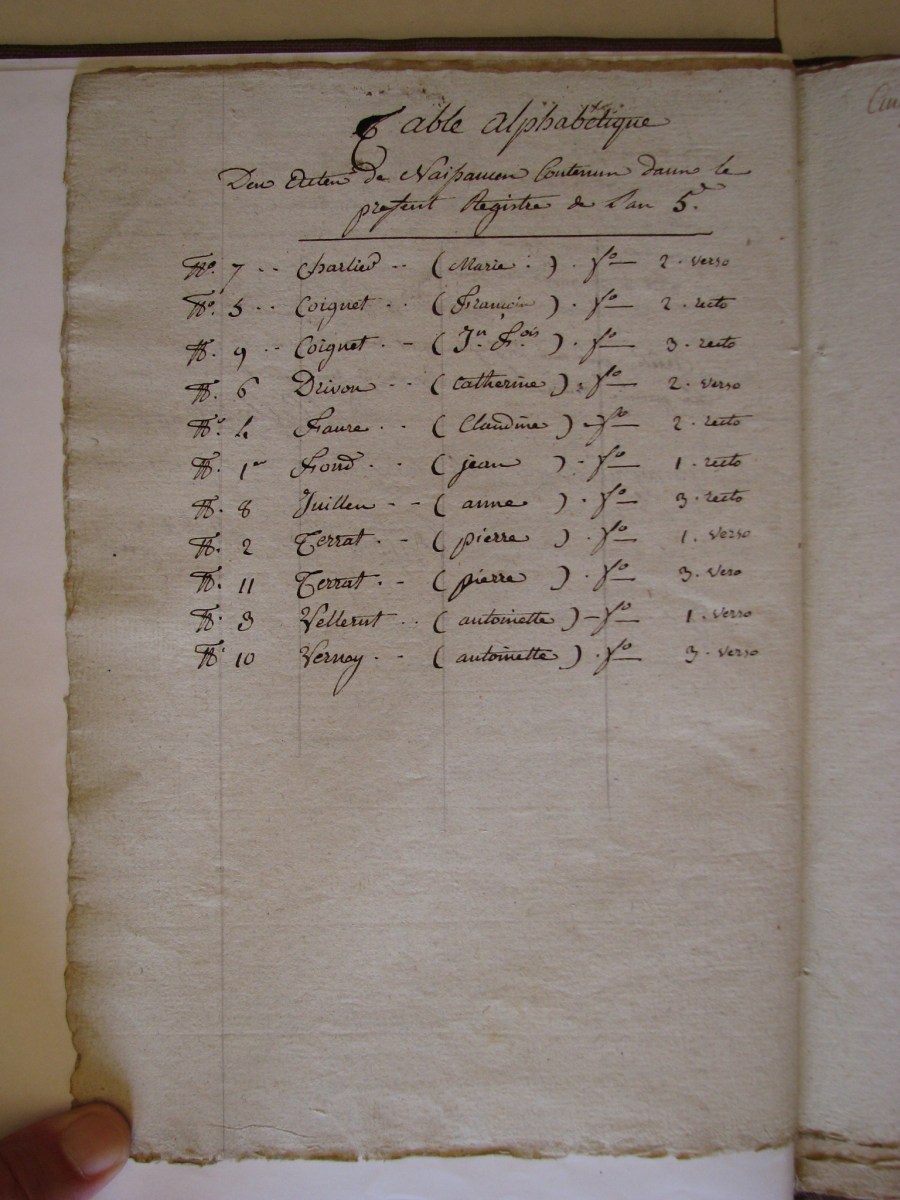 Table alphabétique
Des Actes de Naissances Contenus dans le
present Registre de L'an 5.e
No. 7 .. Charlied .. ( Marie : ) . fo 2 . verso
No. 5 .. Coignet .. ( François ) . fo 2 . recto
No. 9 .. Coignet .. ( Jn. Fois ) . fo 3 . recto
No. 6 Drivon .. ( Catherine ) . fo 2 . verso
No. 4 Faure .. ( Claudine ) . fo 2 . recto
No. 1er Fond .. ( jean ) . fo 1 . recto
No. 8 Juillen .. ( anne ) . fo 3 . recto
No. 2 Terrat .. ( pierre ) . fo 1 . verso
No. 11 Terrat .. ( pierre ) . fo 3 . vero
No. 3 Vellerut .. ( antoinette ) . fo 1 . verso
No. 10 Vernay .. ( antoinette ) . fo 3 . verso